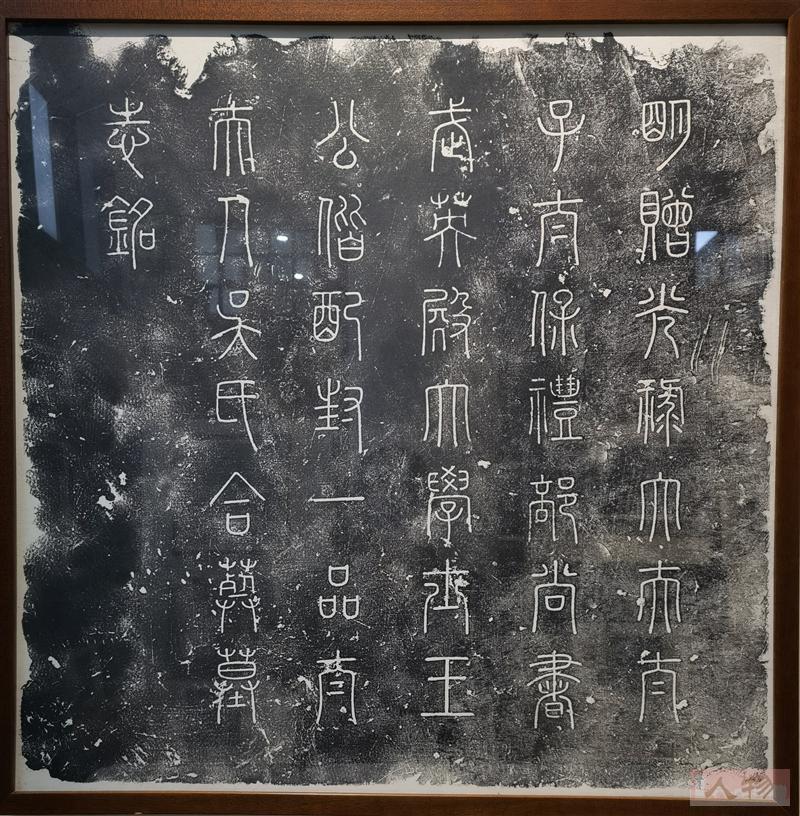 明贈光祿大夫太
子太保禮部尚書
武英殿大學士王
公偕配封一品太
夫人吳氏合葬墓
志銘
人物